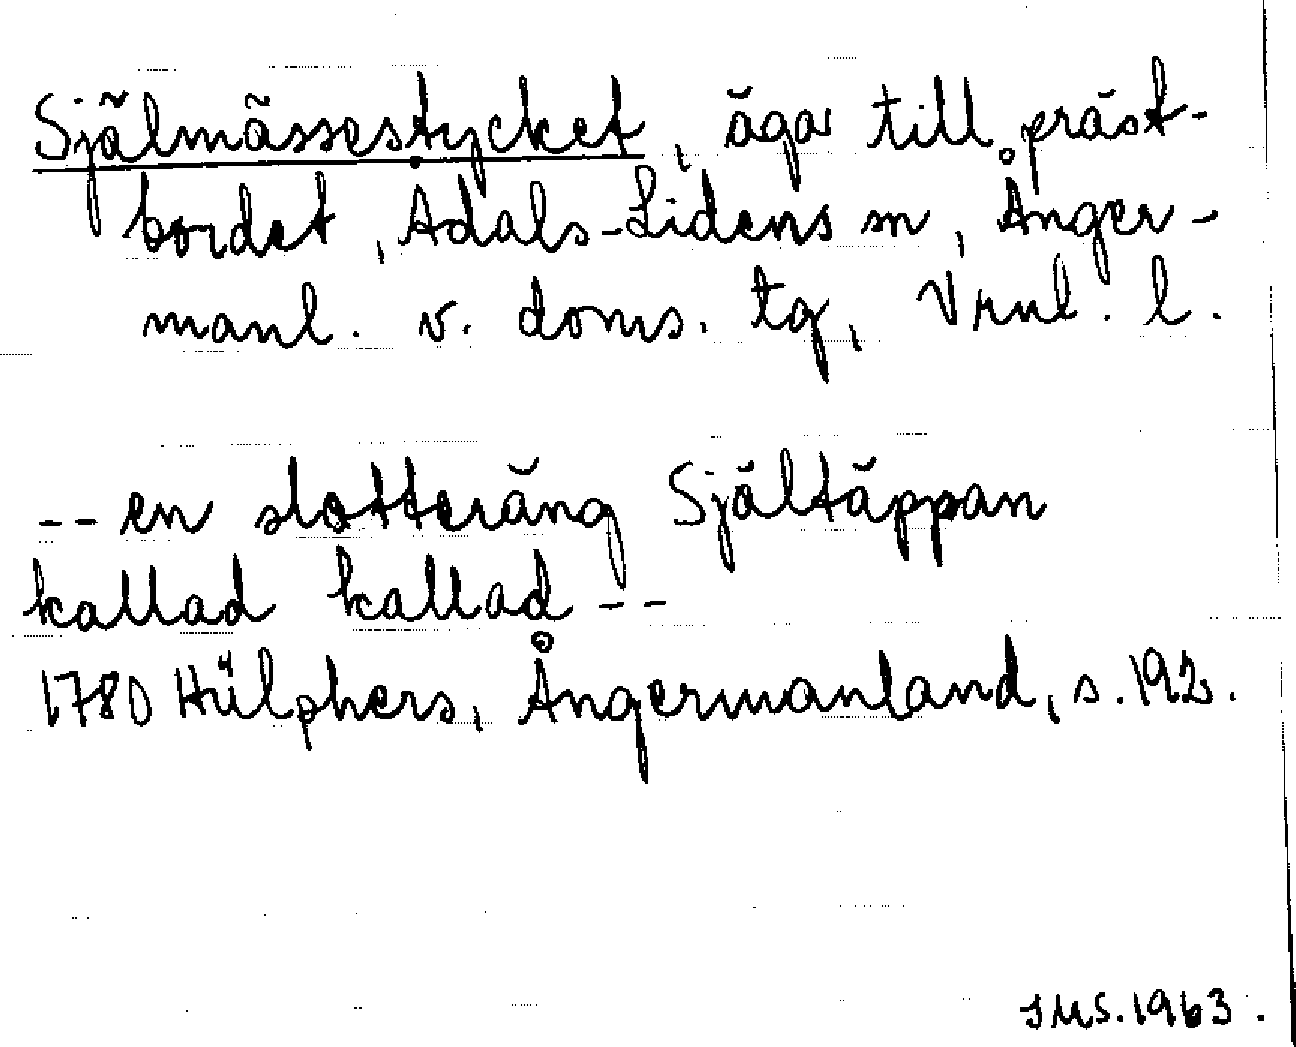 Själmässestycket, ägor till präst-
bordet, Ådals-Lidens sn, Ånger-
manl. v. doms. tg, Vrnl. l.
-- en slotteräng Själtäppan
kallad kallad --
1780 Hülphers, Ångermanland, s. 192.
JMS. 1963.